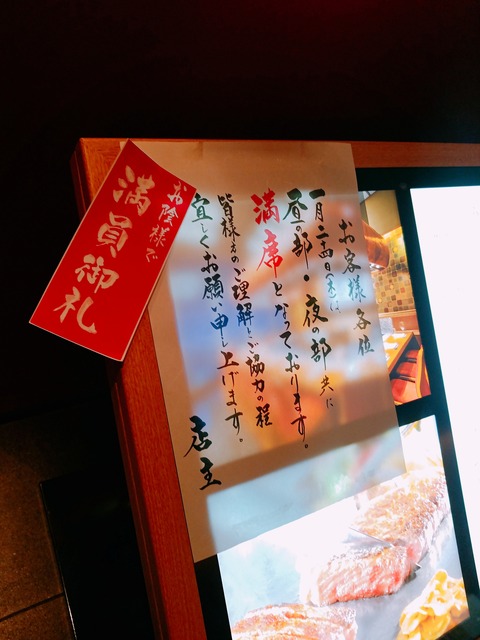 お陰様で
満員御礼
お客様各位
一月二十四日(金)は、
昼の部・夜の部 共に
満席となっております。
皆様方のご理解ご協力の程
宜しくお願い申し上げます。
店主